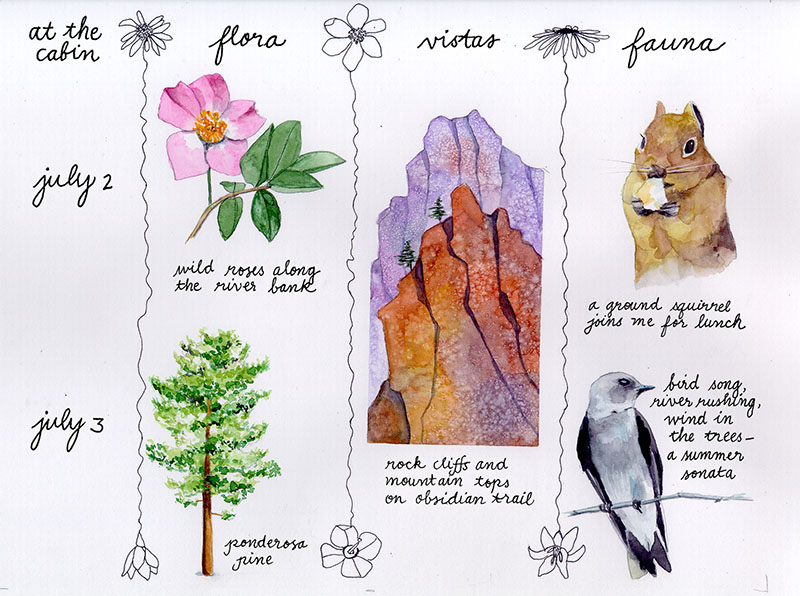 at the
cabin
flora
vistas
fauna
july 2
wild roses along
the river bank
a ground squirrel
joins me for lunch
july 3
ponderosa
pine
rock cliffs and
mountain tops
on obsidian trail
bird song,
river rushing,
wind in
the trees—
a summer
sonata